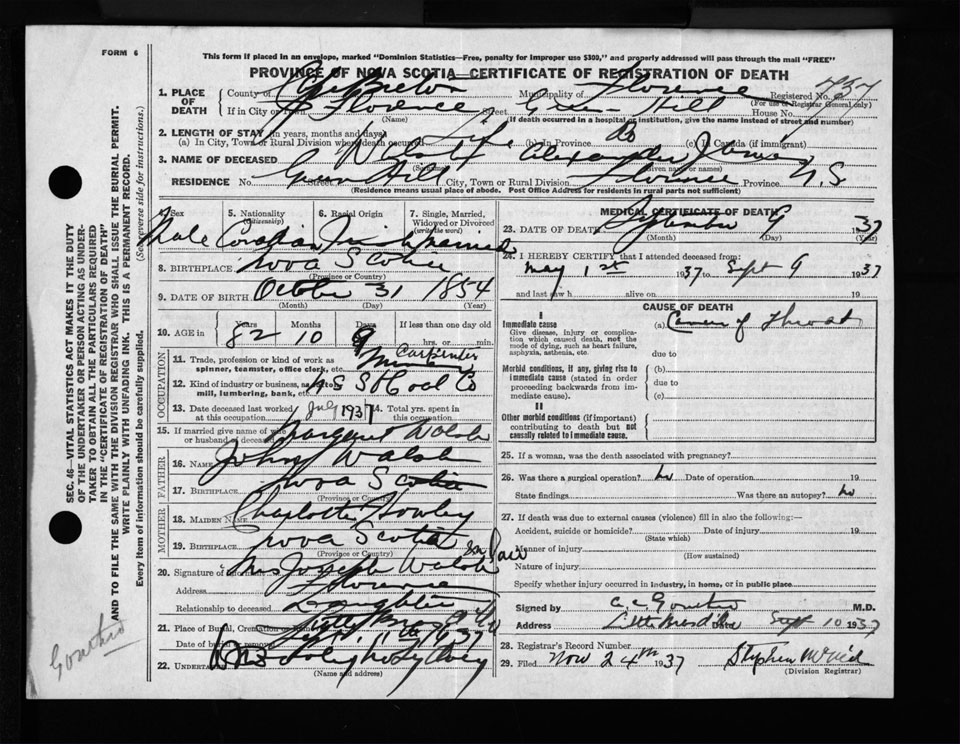 FORM 6
This form if placed in an envelope, marked "Dominion Statistics—Free, penalty for improper use $300," and properly addressed will pass through the mail "FREE"
PROVINCE OF NOVA SCOTIA—CERTIFICATE OF REGISTRATION OF DEATH
1. PLACE OF DEATH
County of Cape Breton Municipality of Florence Registered No.
(For use of Registrar General only)
If in City, Town or Florence Street Green Hill House No.
(Name) (If death occurred in a hospital or institution, give the name instead of street and number)
2. LENGTH OF STAY (in years, months and days)
(a) In City, Town or Rural Division where death occurred Life (b) In Province do (c) In Canada (if immigrant)
3. NAME OF DECEASED Walsh Alexander James
(Given names or names)
RESIDENCE No. Green Hill Street City, Town or Rural Division Florence Province N.S
(Residence means usual place of abode. Post Office Address for residents in rural parts not sufficient)
4. Sex 5. Nationality (Citizenship) 6. Racial Origin 7. Single, Married, Widowed or Divorced (write the word)
Male Canadian Irish married
8. BIRTHPLACE Nova Scotia
(Province or Country)
9. DATE OF BIRTH October 31 1854
(Month) (Day) (Year)
10. AGE in Years Months Days If less than one day old
82 10 9 hrs. or min.
OCCUPATION
11. Trade, profession or kind of work as spinner, teamster, office clerk, etc. Carpenter
12. Kind of industry or business, as cotton mill, lumbering, bank, etc. N S S & Coal Co
13. Date deceased last worked at this occupation July 1937 14. Total yrs. spent in this occupation
15. If married give name of wife or husband of deceased Margaret Walsh
FATHER
16. NAME John Walsh
17. BIRTHPLACE Nova Scotia
(Province or Country)
MOTHER
18. MAIDEN NAME Charlotte Howley
19. BIRTHPLACE Nova Scotia
(Province or Country)
20. Signature of informant Mrs Joseph Walsh
Address Florence
Relationship to deceased Daughter in law
21. Place of Burial, Cremation or Removal Little Bras d'Or
Date of burial or removal Sept. 11th 1937
22. UNDERTAKER
(Name and address)
MEDICAL CERTIFICATE OF DEATH
23. DATE OF DEATH September 9 1937
(Month) (Day) (Year)
24. I HEREBY CERTIFY that I attended deceased from:
May 1st 1937 to Sept 9 1937
and last saw h alive on 19
CAUSE OF DEATH
I
Immediate cause (a) Cancer of Throat
Give disease, injury or complication which caused death, not the mode of dying, such as heart failure, asphyxia, asthenia, etc. due to
Morbid conditions, if any, giving rise to immediate cause (stated in order proceeding backwards from immediate cause). (b)
due to
(c)
II
Other morbid conditions (if important) contributing to death but not causally related to immediate cause.
25. If a woman, was the death associated with pregnancy?
26. Was there a surgical operation? No Date of operation 19
State findings Was there an autopsy? No
27. If death was due to external causes (violence) fill in also the following:—
Accident, suicide or homicide? Date of injury 19
(State which)
Manner of injury
(How sustained)
Nature of injury
Specify whether injury occurred in industry, in home, or in public place
Signed by M.D.
Address Date Sept 10 1937
28. Registrar's Record Number
29. Filed Nov 24th 1937
(Division Registrar)
SEC. 46—VITAL STATISTICS ACT MAKES IT THE DUTY OF THE UNDERTAKER OR PERSON ACTING AS UNDERTAKER TO OBTAIN ALL THE PARTICULARS REQUIRED IN THE "CERTIFICATE OF REGISTRATION OF DEATH" AND TO FILE THE SAME WITH THE DIVISION REGISTRAR WHO SHALL ISSUE THE BURIAL PERMIT.
WRITE PLAINLY WITH UNFADING INK. THIS IS A PERMANENT RECORD.
Every item of information should be carefully supplied. (See reverse side for instructions.)